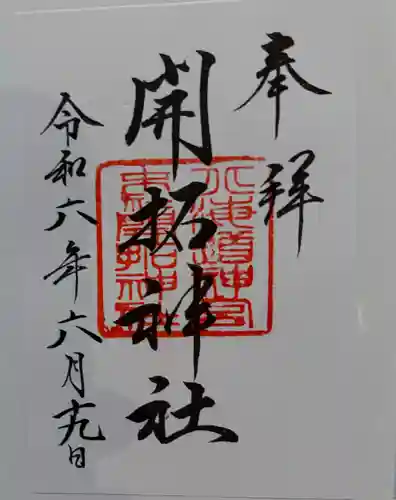 奉拝
開拓神社
令和六年六月十九日
北海道神宮
末社開拓神社